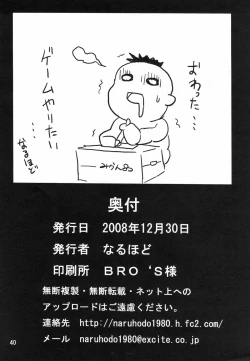 おわった…
ゲームやりたい
…
なるほど
みかん
奥付
発行日　2008年12月30日
発行者　なるほど
印刷所　ＢＲＯ‘Ｓ様
無断複製・無断転載・ネット上への
アップロードはご遠慮ください。
連絡先　http://naruhodo1980.h.fc2.com/
メール　naruhodo1980@excite.co.jp
40